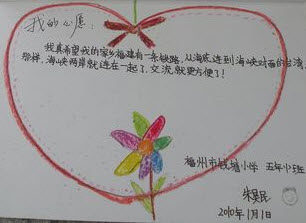 我的心愿：
我真希望我的家乡福建有一条铁路，从海底连到海峡对面的台湾，
那样，海峡两岸就连在一起了，交流就更方便了！
福州市钱塘小学 五年11班
朱昊民
2010年1月1日